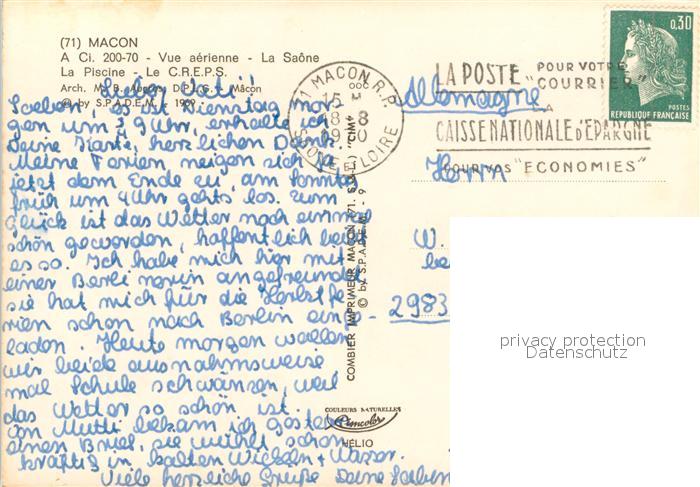 (71) MACON
A Ci. 200-70 - Vue aérienne - La Saône
La Piscine - Le C.R.E.P.S.
Arch. M. B. D.P.L.G. - Mâcon
© by S.P.A.D.E.M. - 1969
71 MACON R.P.
15 H
18 - 8
19 0
SAONE ET LOIRE
LA POSTE POUR VOTRE "COURRIER"
CAISSE NATIONALE d'EPARGNE
POUR VOS "ECONOMIES"
0,30
POSTES
REPUBLIQUE FRANCAISE
Allemagne
Lieber
Soeben, es ist Dienstag mor-
gen um 9 Uhr, erhalte ich
Deine Karte, herzlichen Dank.
Meine Ferien neigen sich ja
jetzt dem Ende zu, am Sonntag
früh um 4 Uhr gehts los. Zum
Glück ist das Wetter noch einmal
schön geworden, hoffentlich bleibt
es so. Ich habe mich hier mit
einer Berlinerin angefreundet
sie hat mich für die Herbstfe-
rien schon nach Berlin einge-
laden. Heute morgen wollen
wir beide ausnahmsweise
mal Schule schwänzen, weil
das Wetter so schön ist.
Von Mutti bekam ich gestern
einen Brief, sie wühlt schon
kräftig in kalten Wickeln + Wasser.
Viele herzliche Grüße Deine
Herrn
W.
be
2983
COMBIER IMPRIMEUR MACON (71. S.-et-L.) "CIM"
© by S.P.A.D.E.M. - 9
COULEURS NATURELLES
Cimcolor
HÉLIO
privacy protection
Datenschutz